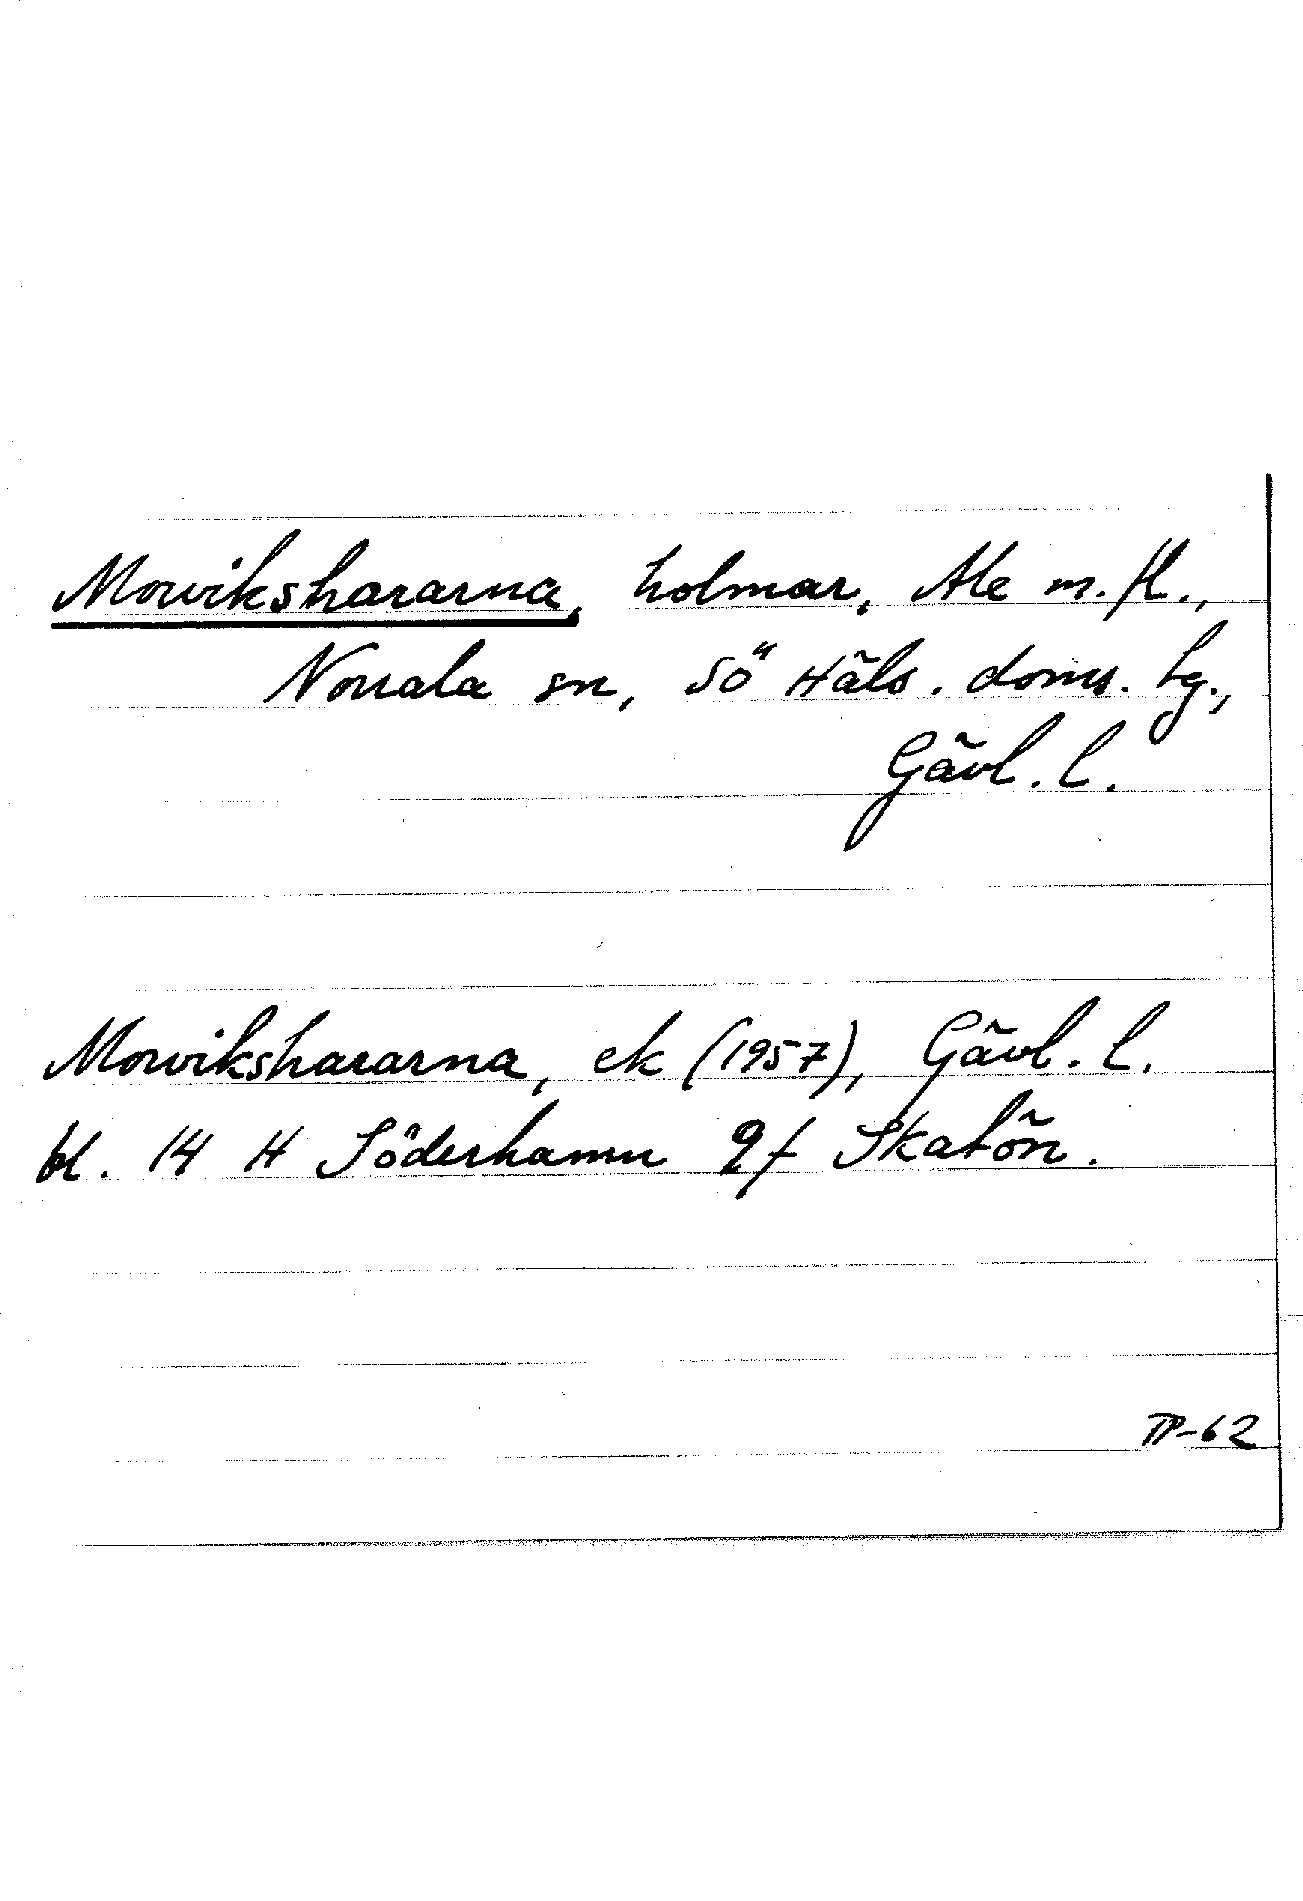 Morvikshararna, holmar, Ale m. fl.,
Norrala sn, Sö Häls. doms. tg.,
Gävl. l.
Morvikshararna, ek (1957), Gävl. l.
bl. 14 H Söderhamn 9f Skatön.
TP-62